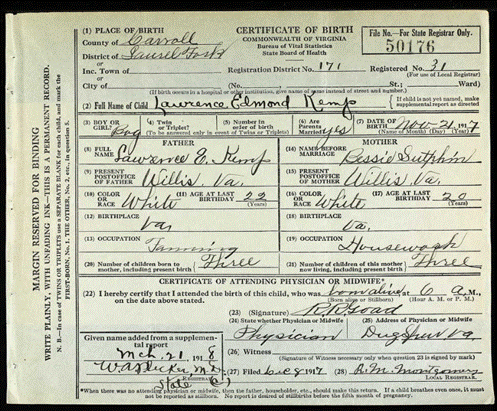 (1) PLACE OF BIRTH
County of Carroll
District of Laurel Fork
or
Inc. Town of
or
City of
CERTIFICATE OF BIRTH
COMMONWEALTH OF VIRGINIA
Bureau of Vital Statistics
State Board of Health
File No.—For State Registrar Only.
50176
Registration District No. 171 Registered No. 31
(For use of Local Registrar)
(No. St.; Ward)
(If birth occurs in a hospital or other institution, give name of same instead of street and number.)
(2) Full Name of Child Lawrence Edmond Kemp
If child is not yet named, make supplemental report as directed
(3) BOY OR GIRL? Boy
(4) Twin or Triplet?
(5) Number in order of birth
(To be answered only in event of Twins or Triplets)
(6) Are Parents Married? yes
(7) DATE OF BIRTH Nov 21, 1917
(Name of Month) (Day) (Year)
FATHER
(8) FULL NAME Lawrence E. Kemp
(9) PRESENT POSTOFFICE OF FATHER Willis Va.
(10) COLOR OR RACE White
(11) AGE AT LAST BIRTHDAY 22
(Years)
(12) BIRTHPLACE Va.
(13) OCCUPATION Farming
(20) Number of children born to mother, including present birth Three
MOTHER
(14) NAME BEFORE MARRIAGE Bessie Sutphin
(15) PRESENT POSTOFFICE OF MOTHER Willis Va.
(16) COLOR OR RACE White
(17) AGE AT LAST BIRTHDAY 20
(Years)
(18) BIRTHPLACE Va.
(19) OCCUPATION Housework
(21) Number of children of this mother now living, including present birth Three
CERTIFICATE OF ATTENDING PHYSICIAN OR MIDWIFE*
(22) I hereby certify that I attended the birth of this child, who was born alive at 6 a M.,
on the date above stated. (Born alive or Stillborn) (Hour A. M. or P. M.)
(23) (Signature) R.R. Goad
(24) State whether Physician or Midwife (25) Address of Physician or Midwife
Physician Dugspur Va.
Given name added from a supplemental report
Mch. 21 1918
(26) Witness
(Signature of Witness necessary only when question 23 is signed by mark)
REGISTRAR
(27) Filed Dec 8 1917 (28) R. M. Montgomery
LOCAL REGISTRAR.
*When there was no attending physician or midwife, then the father, householder, etc., should make this return. If a child breathes even once, it must not be reported as stillborn. No report is desired of stillbirths before the fifth month of pregnancy.
MARGIN RESERVED FOR BINDING
WRITE PLAINLY, WITH UNFADING INK—THIS IS A PERMANENT RECORD.
N. B.—In case of TWINS or TRIPLETS use a SEPARATE BLANK for each child, and mark the
FIRST-BORN, No. 1, THE OTHER, No. 2, etc., in question 5.